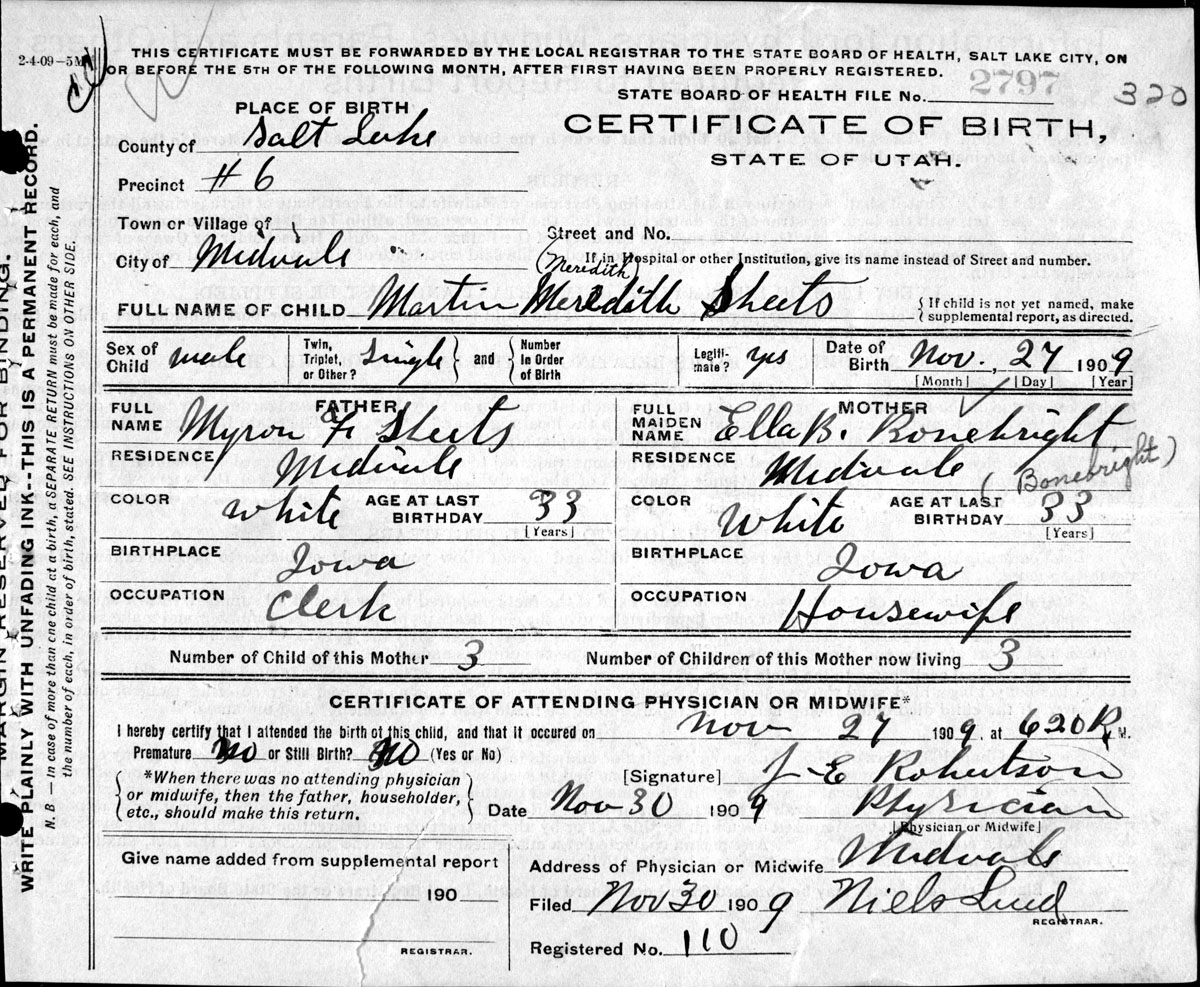 2-4-09-5M
THIS CERTIFICATE MUST BE FORWARDED BY THE LOCAL REGISTRAR TO THE STATE BOARD OF HEALTH, SALT LAKE CITY, ON
OR BEFORE THE 5TH OF THE FOLLOWING MONTH, AFTER FIRST HAVING BEEN PROPERLY REGISTERED.
STATE BOARD OF HEALTH FILE No. 2797 320
PLACE OF BIRTH
CERTIFICATE OF BIRTH,
STATE OF UTAH.
County of Salt Lake
Precinct #6
Town or Village of
Street and No.
City of Midvale
If in Hospital or other Institution, give its name instead of Street and number.
(Meredith)
FULL NAME OF CHILD Martin Meredith Sheets
{If child is not yet named, make supplemental report, as directed.
Sex of Child male Twin, Triplet, or Other? Single } and { Number in Order of Birth Legitimate? yes Date of Birth Nov. 27 1909
[Month] [Day] [Year]
FATHER
FULL NAME Myron F. Sheets
RESIDENCE Midvale
COLOR white AGE AT LAST BIRTHDAY 33
[Years]
BIRTHPLACE Iowa
OCCUPATION Clerk
MOTHER
FULL MAIDEN NAME Ella B. Bonebright
RESIDENCE Midvale
(Bonebright)
COLOR White AGE AT LAST BIRTHDAY 33
[Years]
BIRTHPLACE Iowa
OCCUPATION Housewife
Number of Child of this Mother 3 Number of Children of this Mother now living 3
CERTIFICATE OF ATTENDING PHYSICIAN OR MIDWIFE*
I hereby certify that I attended the birth of this child, and that it occured on Nov 27 1909, at 620 P. M.
Premature No or Still Birth? No (Yes or No)
*When there was no attending physician
or midwife, then the father, householder,
etc., should make this return.
[Signature] J E Robertson
Date Nov 30 1909 Physician
[Physician or Midwife]
Give name added from supplemental report
190
REGISTRAR.
Address of Physician or Midwife Midvale
Filed Nov 30 1909 Niels Lind
REGISTRAR.
Registered No. 110
MARGIN RESERVED FOR BINDING.
WRITE PLAINLY WITH UNFADING INK--THIS IS A PERMANENT RECORD.
N. B — In case of more than one child at a birth, a SEPARATE RETURN must be made for each, and
the number of each, in order of birth, stated. SEE INSTRUCTIONS ON OTHER SIDE.